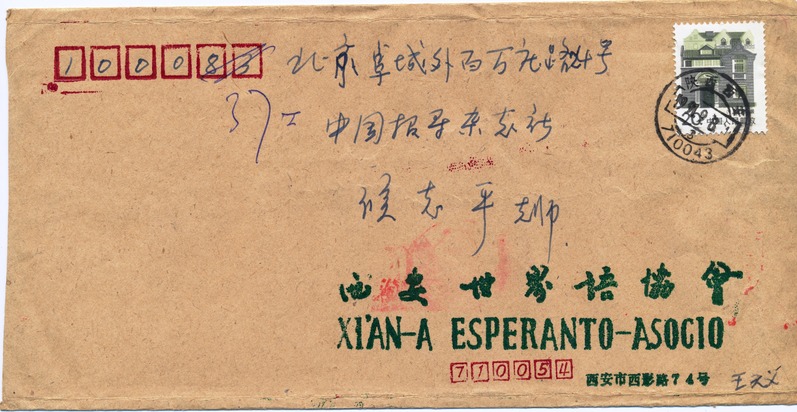 100083 北京阜城外百万庄路24号
37
中国报导杂志社
侯志平老师
陕西
710043
西安世界語協會
XI'AN-A ESPERANTO-ASOCIO
710054 西安市西影路74号 王天义